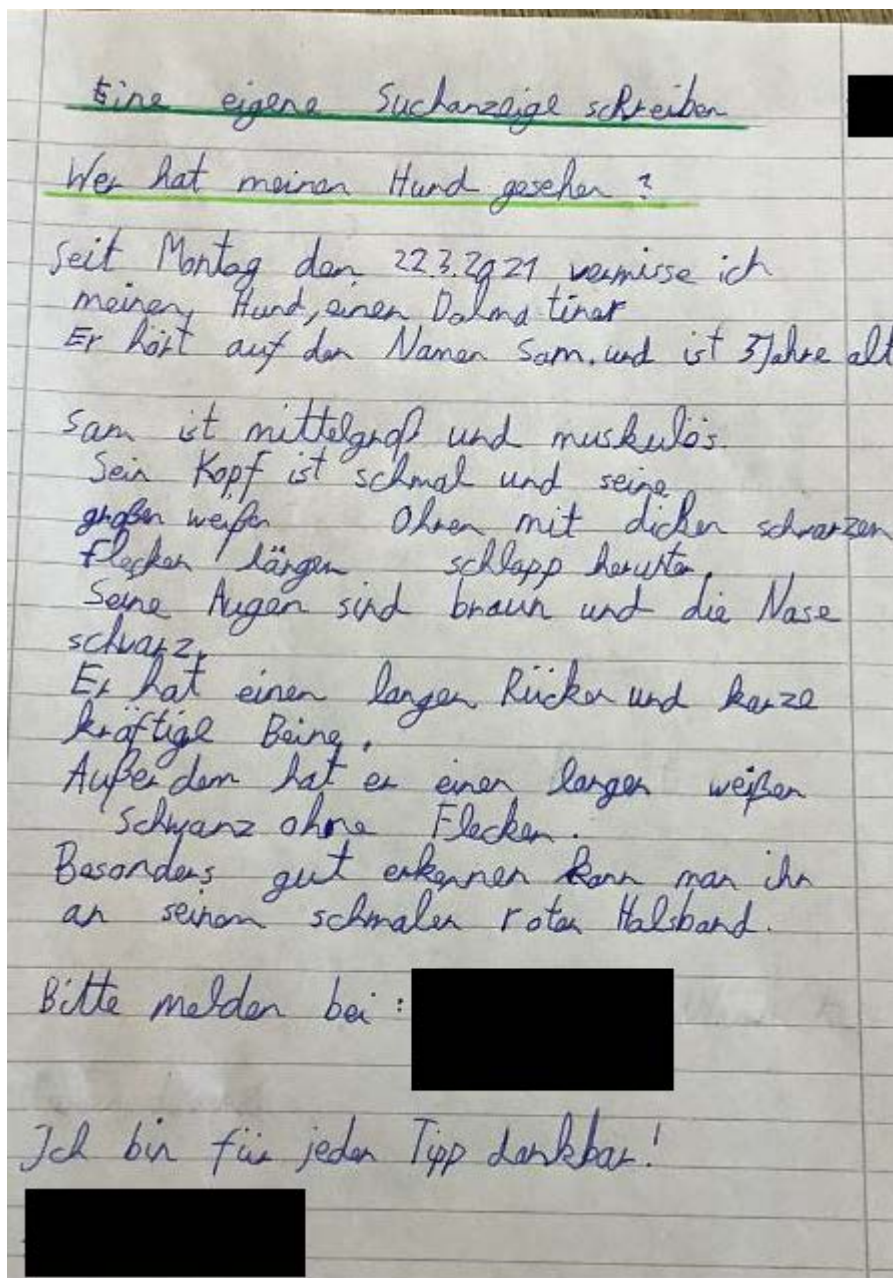 Eine eigene Suchanzeige schreiben
Wer hat meinen Hund gesehen?
Seit Montag den 22.3.2021 vermisse ich
meinen Hund, einen Dalmatiner
Er hört auf den Namen Sam. und ist 3 Jahre alt
Sam ist mittelgroß und muskulös.
Sein Kopf ist schmal und seine
großen weißen Ohren mit dicken schwarzen
Flecken hängen schlapp herunter.
Seine Augen sind braun und die Nase
schwarz.
Er hat einen langen Rücken und kurze
kräftige Beine.
Außerdem hat er einen langen weißen
Schwanz ohne Flecken.
Besonders gut erkennen kann man ihn
an seinem schmalen roten Halsband.
Bitte melden bei:
Ich bin für jeden Tipp dankbar!